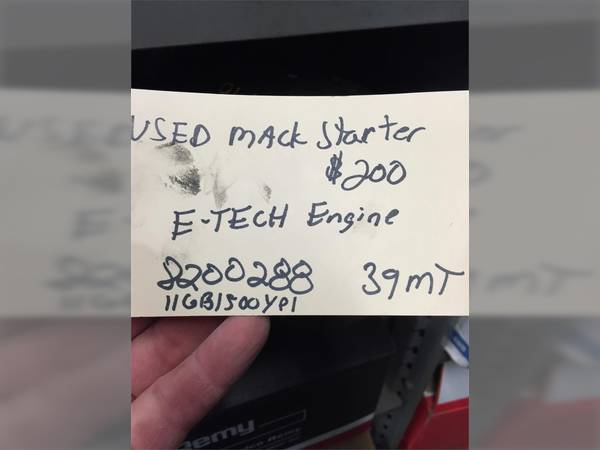 USED MACK Starter
$200
E-TECH Engine
8200288 39MT
11GB1500YP1
Remy